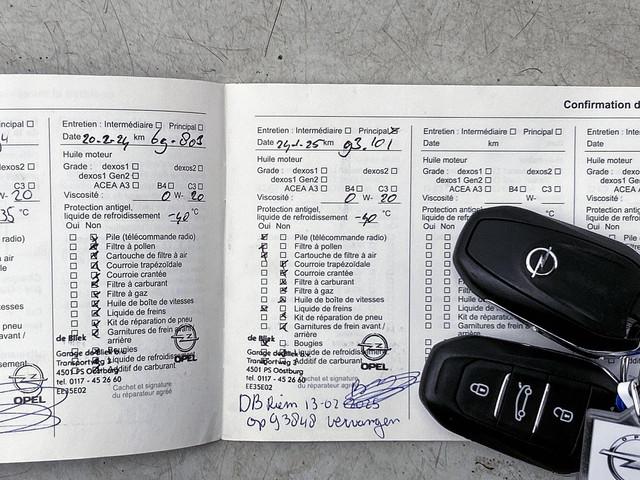 Confirmation d
Entretien : Intermédiaire Principal
Date 20-2-24 km 69.803
Huile moteur
Grade : dexos1 dexos2
dexos1 Gen2
ACEA A3 B4 C3
Viscosité : 0 W- 20
Protection antigel,
liquide de refroidissement -40 °C
Oui Non
Pile (télécommande radio)
Filtre à pollen
Cartouche de filtre à air
Courroie trapézoïdale
Courroie crantée
Filtre à carburant
Filtre à gaz
Huile de boîte de vitesses
Liquide de freins
Kit de réparation de pneu
Garnitures de frein avant /
arrière
Bougies
Liquide de refroidissement
Additif de carburant
de Bliek
4501 PS Oostburg
tel. 0117 - 45 26 60
EE35E02
Cachet et signature
du réparateur agréé
OPEL
dexos2
C3
W- 20
35 °C
radio)
à air
n pneu
avant /
OPEL
Entretien : Intermédiaire Principal
Date 24-1-25 km 93.101
Huile moteur
Grade : dexos1 dexos2
dexos1 Gen2
ACEA A3 B4 C3
Viscosité : 0 W- 20
Protection antigel,
liquide de refroidissement -40 °C
Oui Non
Pile (télécommande radio)
Filtre à pollen
Cartouche de filtre à air
Courroie trapézoïdale
Courroie crantée
Filtre à carburant
Filtre à gaz
Huile de boîte de vitesses
Liquide de freins
Kit de réparation de pneu
Garnitures de frein avant /
arrière
Bougies
Liquide de refroidissement
Additif de carburant
4501 PS Oostburg
tel. 0117 - 45 26 60
EE35E02
Cachet et signature
du réparateur agréé
OPEL
DB Riem 13-02-2025
op 93848 vervangen
Entretien : Intermédiaire Principal
Date km
Huile moteur
Grade : dexos1 dexos2
dexos1 Gen2
ACEA A3 B4 C3
Viscosité : W-
Protection antigel,
Oui Non
Entretien : Inter
Date
Huile moteur
Grade :